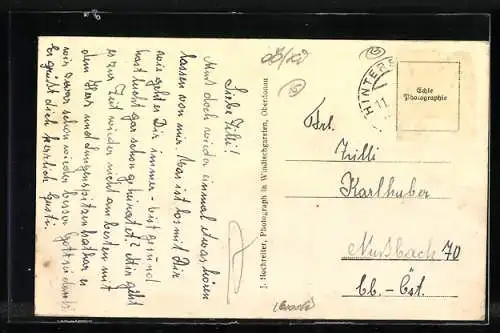 Liebe Zilli!
Muß doch wieder einmal etwas hören
lassen von mir. Was ist los mit Dir
wie geht es Dir immer - bist gesund
hast leicht gar schon geheiratet? Mir geht
es zur Zeit wieder nicht am besten mit
dem Herz und Lungenspitzenkathar es
wird schon wieder besser Gott sei dank
Es grüßt dich herzlich Gusti.
J. Hochreiter, Photograph in Windischgarsten, Oberdonau
HINTERS
11
Echte
Photographie
Frl.
Zilli
Karlhuber
Nußbach 70
Ob.-Öst.